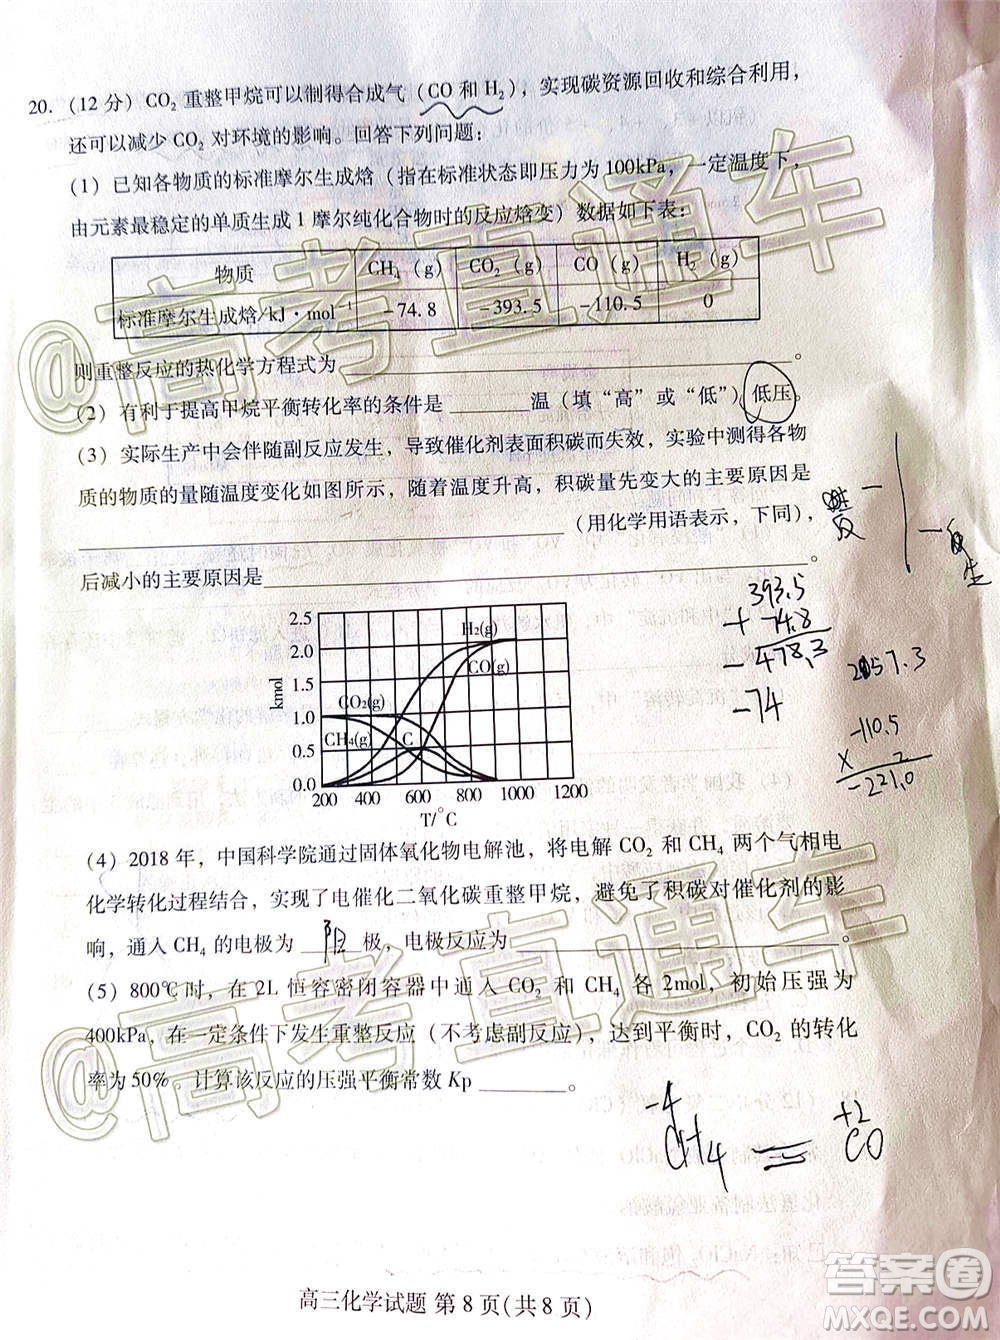 20. (12 分) CO₂ 重整甲烷可以制得合成气 (CO 和 H₂), 实现碳资源回收和综合利用,
还可以减少 CO₂ 对环境的影响。回答下列问题:
(1) 已知各物质的标准摩尔生成焓 (指在标准状态即压力为 100kPa, 一定温度下,
由元素最稳定的单质生成 1 摩尔纯化合物时的反应焓变) 数据如下表:
物质 CH₄ (g) CO₂ (g) CO (g) H₂ (g)
标准摩尔生成焓/kJ·mol⁻¹ -74.8 -393.5 -110.5 0
则重整反应的热化学方程式为 ______ 。
(2) 有利于提高甲烷平衡转化率的条件是 ______ 温 (填“高”或“低”) 低压。
(3) 实际生产中会伴随副反应发生, 导致催化剂表面积碳而失效, 实验中测得各物
质的物质的量随温度变化如图所示, 随着温度升高, 积碳量先变大的主要原因是
______ (用化学用语表示, 下同),
后减小的主要原因是 ______ 。
反
生
393.5
+ 74.8
- 478.3
-74
-110.5
× 2
-221.0
kmol
2.5
2.0
1.5
1.0
0.5
0.0
H₂(g)
CO(g)
CO₂(g)
CH₄(g)
C
200 400 600 800 1000 1200
T/°C
(4) 2018 年, 中国科学院通过固体氧化物电解池, 将电解 CO₂ 和 CH₄ 两个气相电
化学转化过程结合, 实现了电催化二氧化碳重整甲烷, 避免了积碳对催化剂的影
响, 通入 CH₄ 的电极为 阳 极, 电极反应为 ______ 。
(5) 800℃ 时, 在 2L 恒容密闭容器中通入 CO₂ 和 CH₄ 各 2mol, 初始压强为
400kPa, 在一定条件下发生重整反应 (不考虑副反应), 达到平衡时, CO₂ 的转化
率为 50%, 计算该反应的压强平衡常数 Kp ______ 。
-4 +2
CH₄ = CO
高三化学试题 第 8 页(共 8 页)
@高考直通车
@高考直通车
答案圈
MXQE.COM